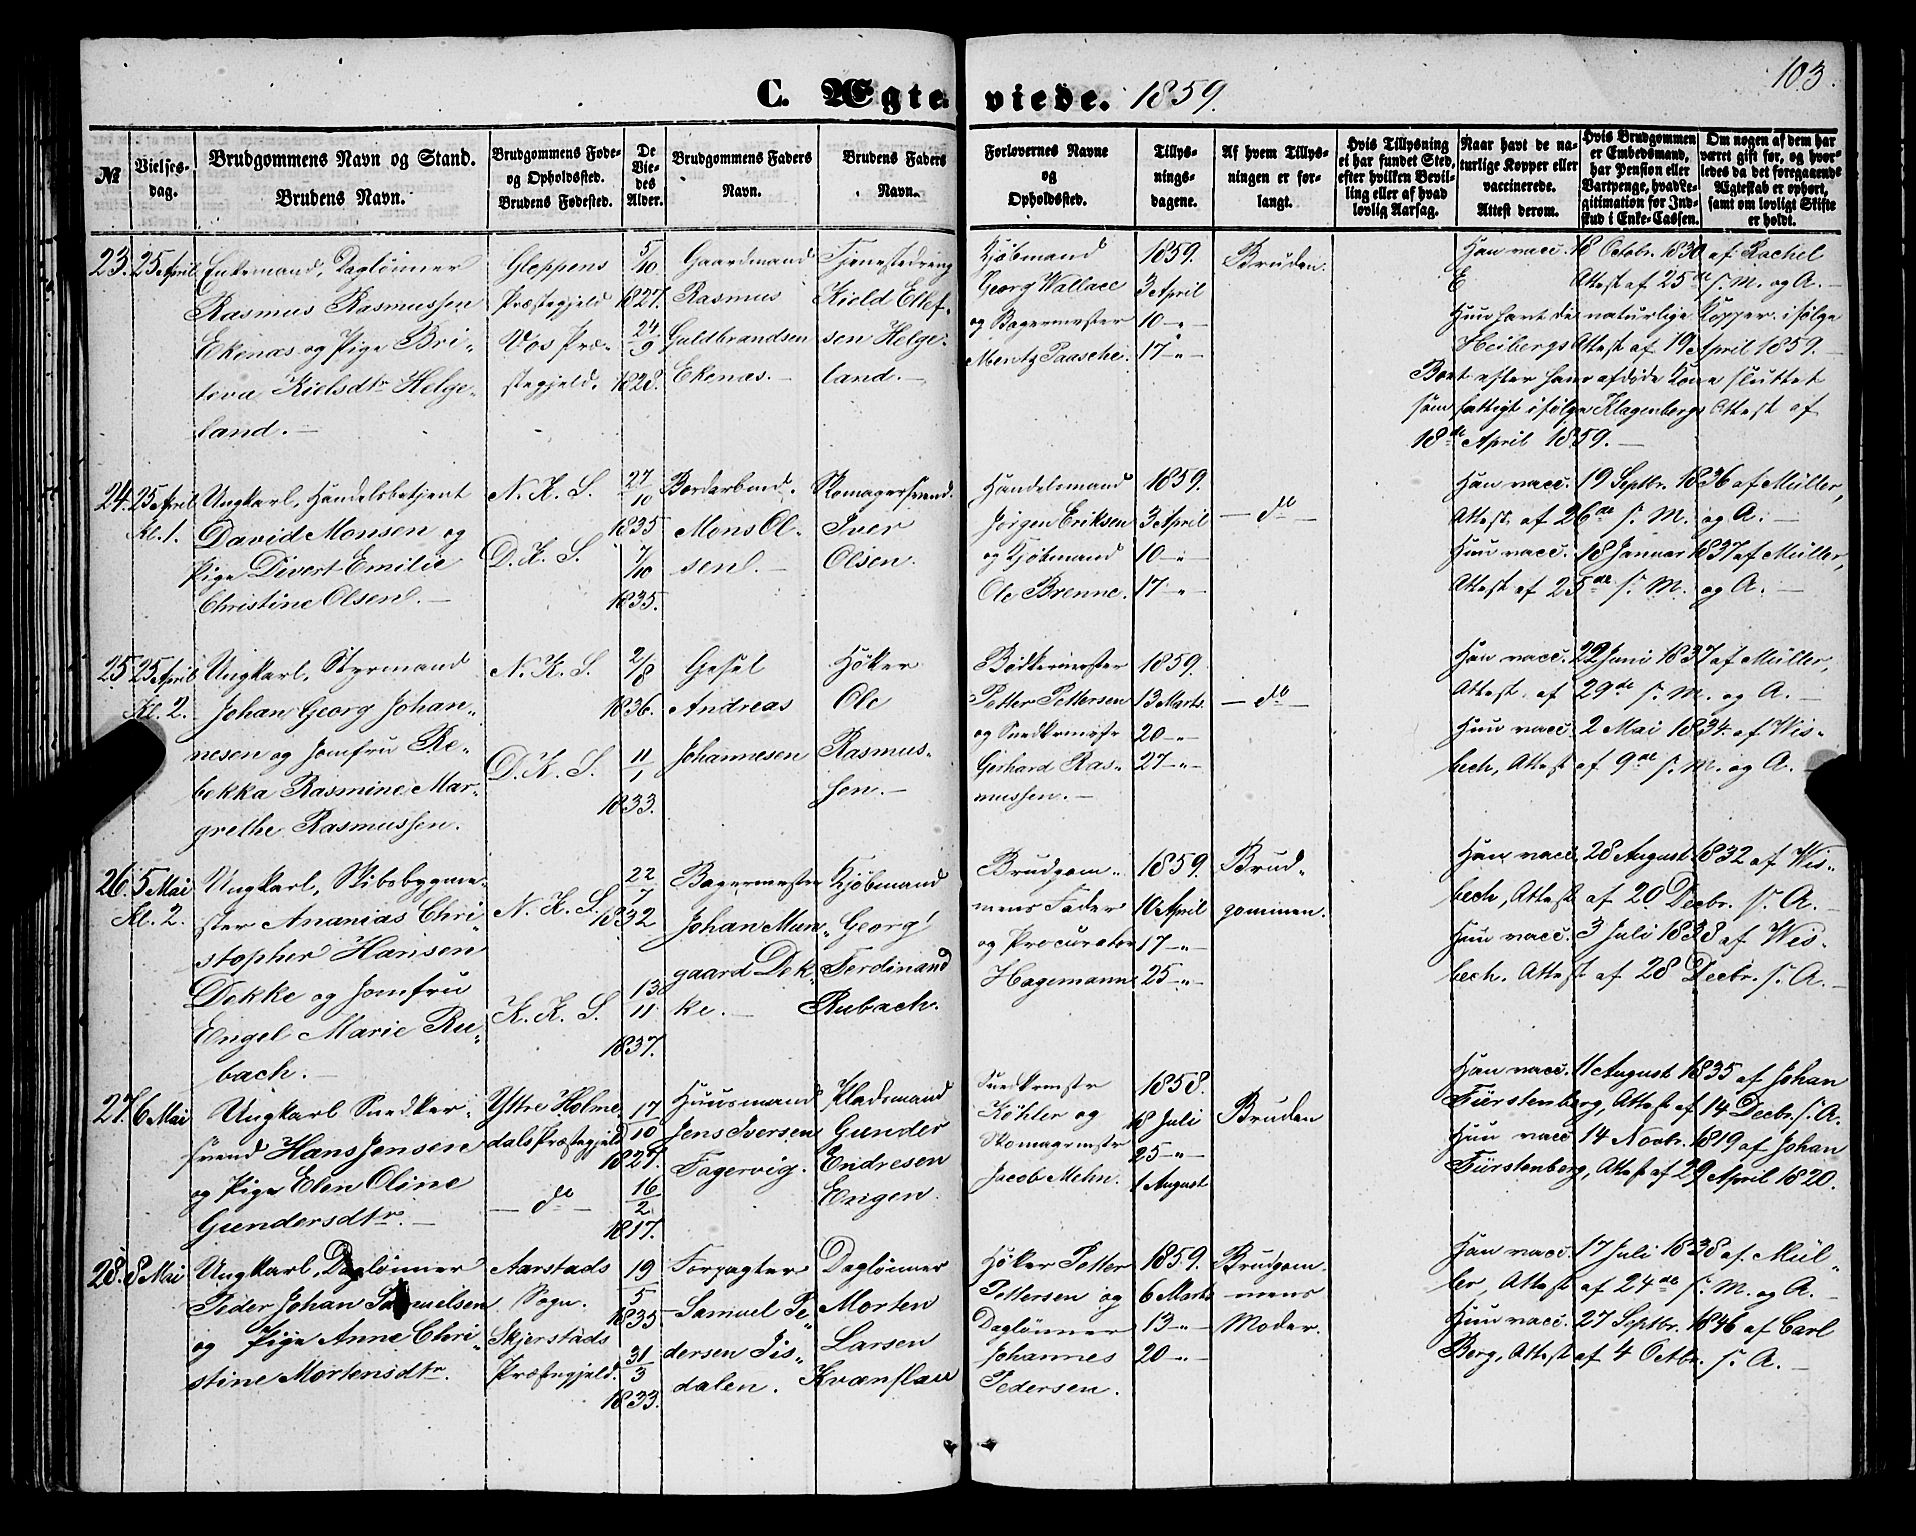 103.
C. Ægteviede. 1859.
№
Vielses-
dag.
Brudgommens Navn og Stand.
Brudens Navn.
Brudgommens Føde-
og Opholdssted.
Brudens Fødested.
De
Vie-
des
Alder.
Brudgommens Faders
Navn.
Brudens Faders
Navn.
Forlovernes Navne
og
Opholdssted.
Tillys-
nings-
dagene.
Af hvem Tillys-
ningen er for-
langt.
Hvis Tillysning
ei har fundet Sted,
efter hvilken Bevil-
ling eller af hvad
lovlig Aarsag.
Naar havt de na-
turlige Kopper eller
vaccinerede.
Attest derom.
Hvis Brudgommen
er Embedsmand,
har Pension eller
Vartpenge, hvad Le-
gitimation for Ind-
skud i Enke-Cassen.
Om nogen af dem har
været gift før, og hvor-
ledes da det foregaaende
Ægteskab er ophørt,
samt om lovligt Skifte
er holdt.
23. 25 April
Enkemand, Daglønner
Rasmus Rasmussen
Ekenæs og Pige Bri-
teva Kielsdtr Helge-
land. —
Gloppens
Præstegjeld
Vos Præ-
stegjeld.
5/10
1827.
24/9
1828.
Gaardmand
Rasmus
Guldbrandsen
Ekenæs. —
Tjenestedreng
Kield Ellef-
sen Helge-
land. —
Kjøbmand
Georg Wallace
og Bagermester
Mentz Paasche.
1859.
3 April
10 -"-
17 -"-
Bruden.
Han vacc. 18 Octobr. 1830 af Rachel
E Attest af 25de s. M. og A. —
Hun havt de naturlige Kopper ifølge
Heibergs Attest af 19 April 1859. —
Boet efter hans afdøde Kone sluttet
som fattigt ifølge Klagenbergs Attest af
18de April 1859. —
24. 25 April
Kl. 1.
Ungkarl, Handelsbetjent
David Monsen og
Pige Divert Emilie
Christine Olsen. —
N. K. S.
D. K. S.
27/10
1835
7/10
1835.
Bordarbmd.
Mons Ol-
sen. —
Skomagersvend.
Iver
Olsen.
Handelsmand
Jørgen Eriksen
og Kjøbmand
Ole Brenne.
1859.
3 April
10 -"-
17 -"-
— do —
Han vacc. 19 Septbr. 1836 af Müller,
Attest af 26de s. M. og A. —
Hun vacc. 18 Januar 1837 af Müller,
Attest af 25de s. M. og A. —
25 25 April
Kl. 2.
Ungkarl, Styrmand
Johan Georg Johan-
nesen og Jomfru Re-
bekka Rasmine Mar-
grethe Rasmussen.
N. K. S.
D. K. S.
2/8
1836.
11/1
1833.
Gesel
Andreas
Johannesen
Høker
Ole
Rasmus-
sen. —
Bødkermester
Petter Pettersen
og Snedkermestr
Gerhard Ras-
mussen. —
1859.
13 Marts
20 -"-
27 -"-
— do —
Han vacc. 22 Juni 1837 af Müller,
Attest af 29de s. M. og A. —
Hun vacc. 2 Mai 1834 af Wis-
bech, Attest af 9de s. M. og A. —
26. 5 Mai
Kl. 2.
Ungkarl, Skibsbygme-
ster Ananias Chri-
stopher Hansen
Dekke og Jomfru
Engel Marie Ru-
bach. —
N. K. S.
K. K. S.
22/7
1832
13/11
1837.
Bagermestre
Johan Mun-
gaard Dek-
ke. —
Kjøbmand
Georg
Ferdinand
Rubach.
Brudgom-
mens Fader
og Procurator
Hagemann
1859.
10 April
17 -"-
25 -"-
Brud-
gommen.
Han vacc. 28 August 1832 af Wis-
bech, Attest af 20 Decbr. s. A. —
Hun vacc. 3 Juli 1838 af Wis-
bech. Attest af 28 Decbr. s. A. —
27. 6 Mai
Ungkarl Snedker-
svend Hans Jensen
og Pige Elen Oline
Gundersdtr. —
Yttre Holme-
dals Præstegjeld
— do —
17/10
1827.
16/2
1817.
Huusmand
Jens Iversen
Fagervig.
Pladsmand
Gunder
Endresen
Engen.
Snedkermstr
Köhler og
Skomagermstr
Jacob Mehn.
1858.
18 Juli
25 -"-
1 August
Bruden
Han vacc. 11 August 1835 af Johan
Fürstenberg, Attest af 14 Decbr. s. A.
Hun vacc 14 Novbr. 1819 af Johan
Fürstenberg, Attest af 29 April 1820.
28. 8 Mai
Ungkarl, Daglønner
Peder Johan Samuelsen
og Pige Anne Chri-
stine Mortensdtr.
Aarstads
Sogn.
Skjerstads
Præstegjeld.
19/5
1835
31/3
1833.
Forpagter
Samuel Pe-
dersen Tis-
dalen.
Daglønner
Morten
Larsen
Kvænflau
Høker Petter
Pettersen og
Daglønner
Johannes
Pedersen.
1859.
6 Marts
13 -"-
20 -"-
Brudgom-
mens
Moder.
Han vacc. 17 Juli 1838 af Mül-
ler, Attest af 24de s. M. og A. —
Hun vacc. 27 Septbr. 1846 af Carl
Berg, Attest af 4 Octbr. s. A. —